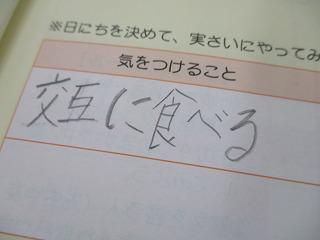 ※日にちを決めて、実さいにやってみ
気をつけること
交互に食べる